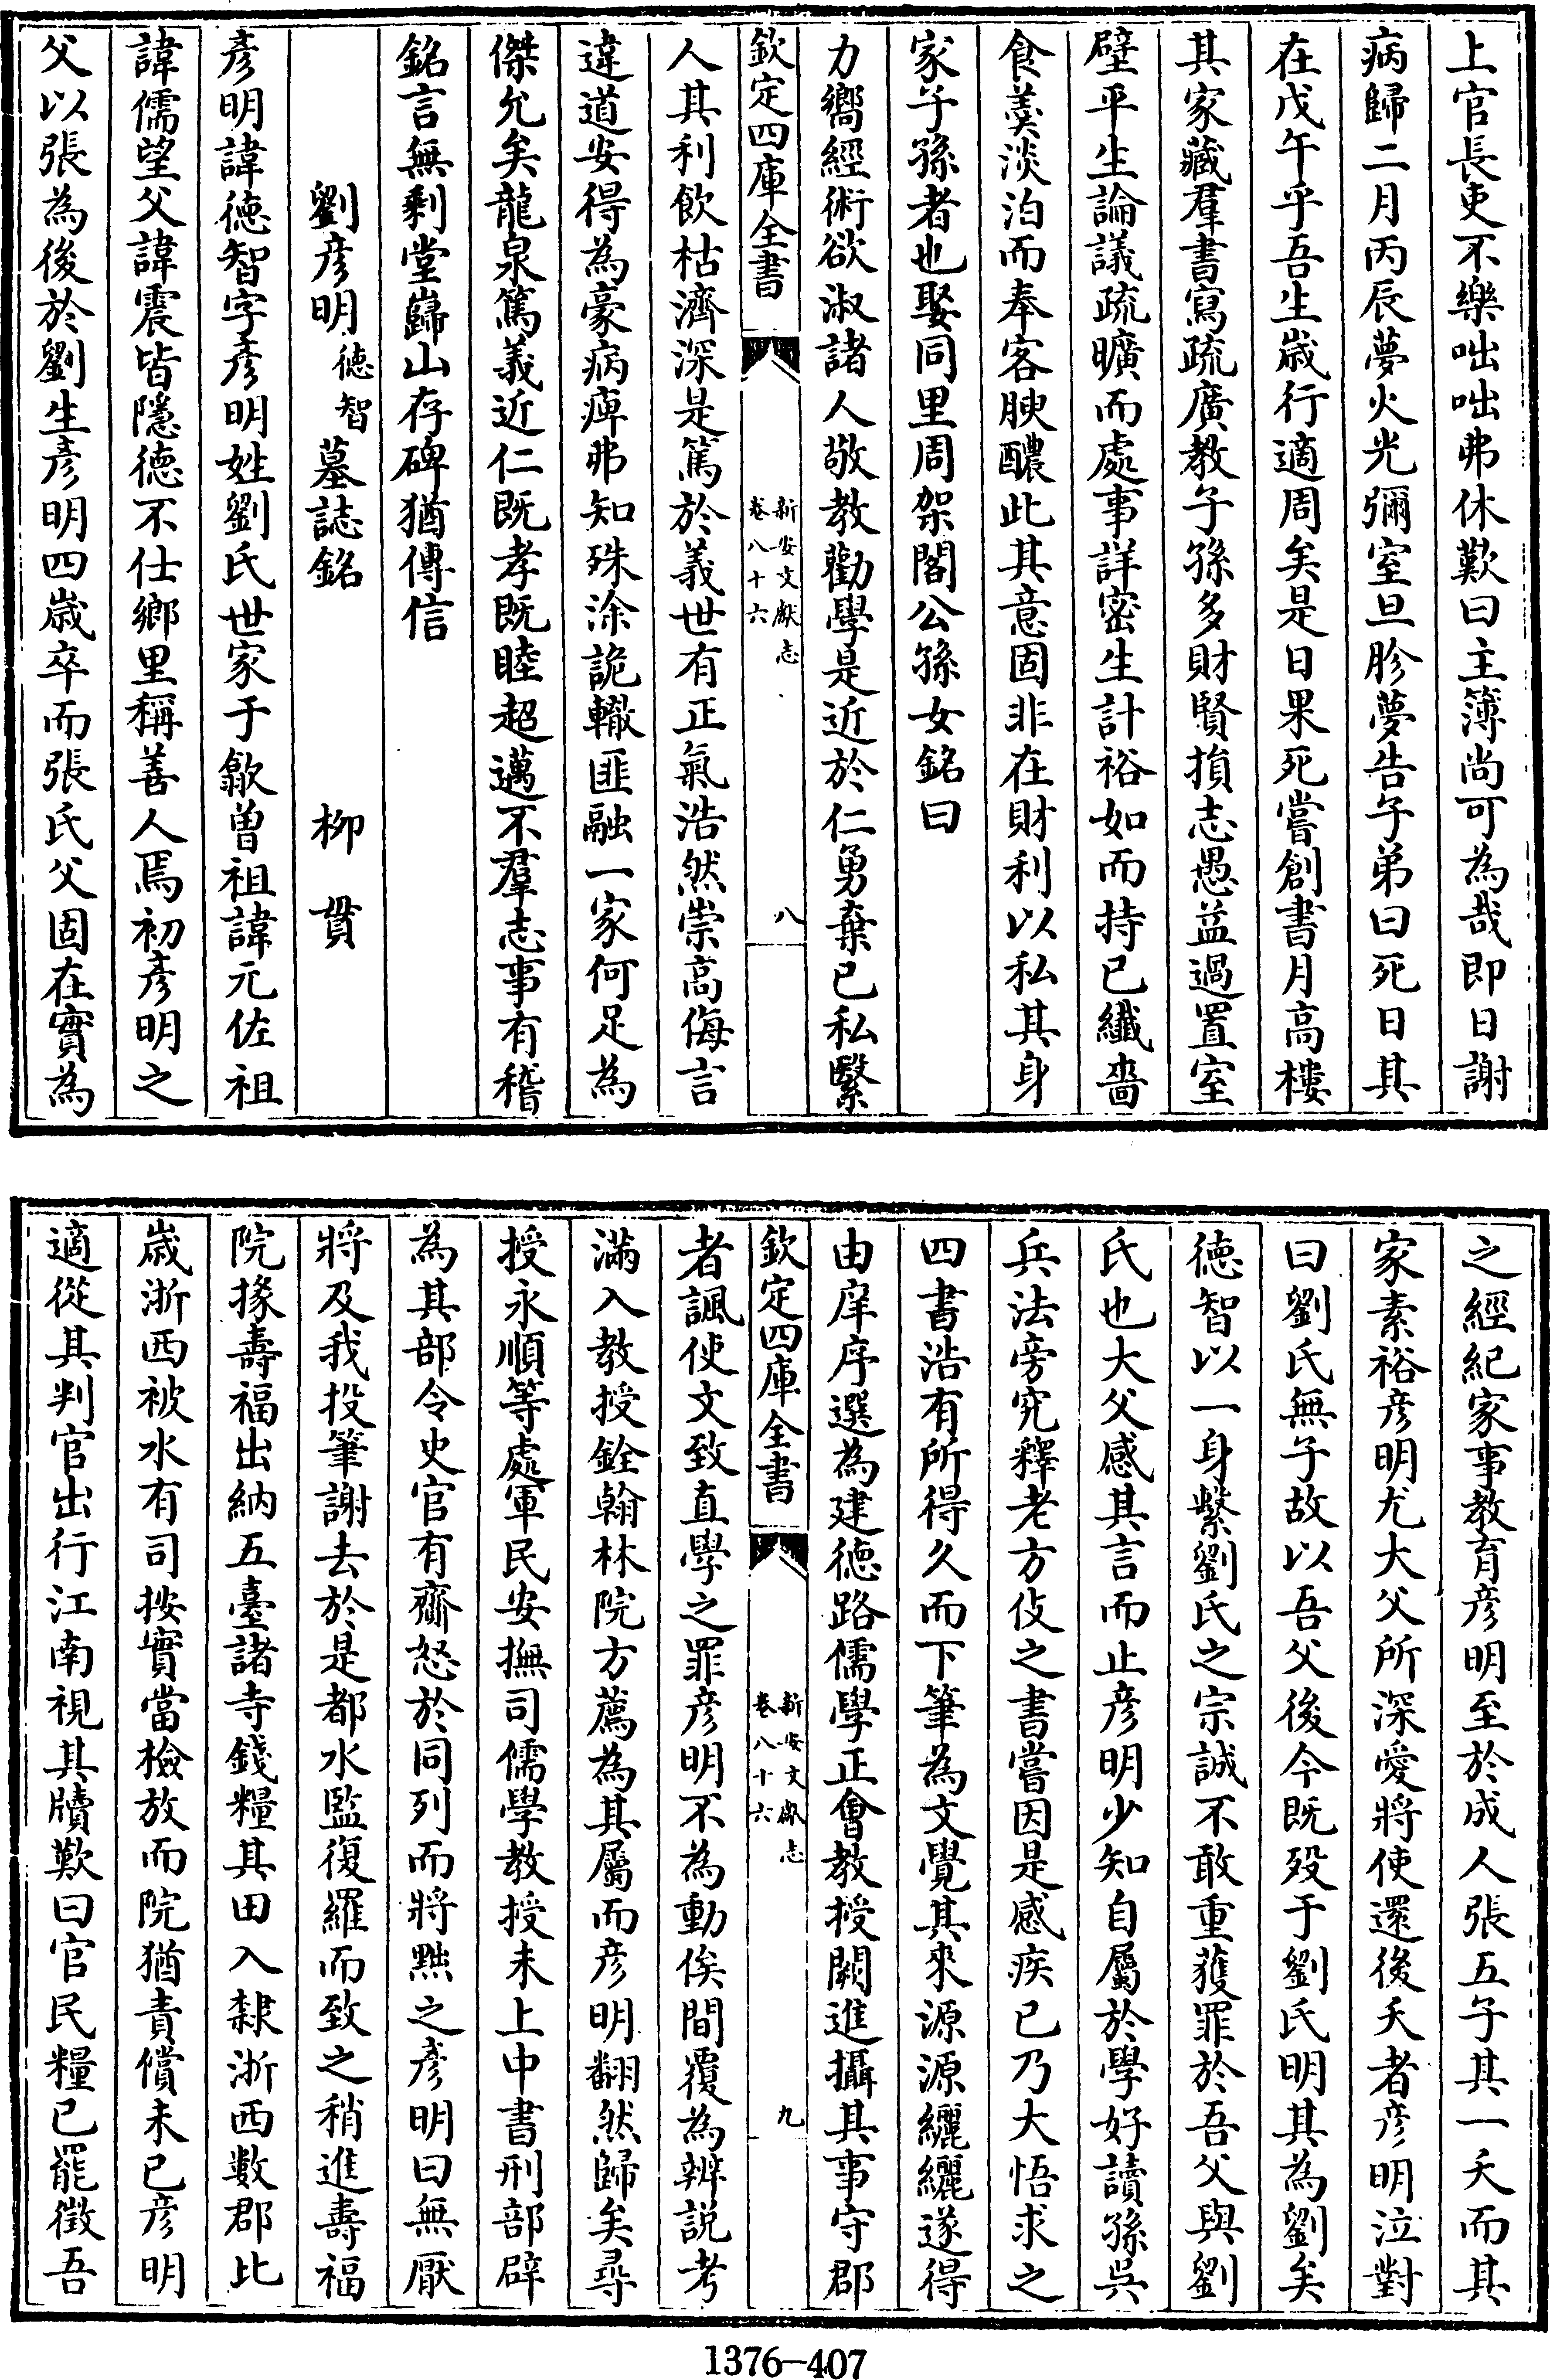 上官長吏不樂咄咄弗休歎曰主簿尚可為哉即日謝
病歸二月丙辰夢火光彌室旦胗夢告子弟曰死日其
在戊午乎吾生歲行適周矣是日果死嘗創書月髙樓
其家藏羣書寫疏廣教子孫多財賢損志愚益過置室
壁平生論議疏曠而處事詳密生計裕如而持已纖嗇
食羮淡泊而奉客腴醲此其意固非在財利以私其身
家子孫者也娶同里周架閣公孫女銘曰
力嚮經術欲淑諸人敬教勸學是近於仁勇棄已私繄
欽定四庫全書
新安文獻志
卷八十六
八
人其利飲枯濟深是篤於義世有正氣浩然崇高侮言
違道安得為豪病痺弗知殊涂詭轍匪融一家何足為
傑允矣龍泉篤義近仁既孝既睦超邁不羣志事有稽
銘言無剩堂巋山存碑猶傳信
劉彦明德智墓誌銘 柳貫
彦明諱徳智字彦明姓劉氏世家于歙曽祖諱元佐祖
諱儒望父諱震皆隱徳不仕鄉里稱善人焉初彦明之
父以張為後於劉生彦明四歲卒而張氏父固在實為
之經紀家事教育彦明至於成人張五子其一夭而其
家素裕彦明尤大父所深愛將使還後夭者彦明泣對
曰劉氏無子故以吾父後今既殁于劉氏明其為劉矣
徳智以一身繫劉氏之宗誠不敢重獲罪於吾父與劉
氏也大父感其言而止彦明少知自屬於學好讀孫吳
兵法旁究釋老方伎之書嘗因是感疾已乃大悟求之
四書浩有所得久而下筆為文覺其來源源纚纚遂得
由庠序選為建徳路儒學正會教授闕進攝其事守郡
欽定四庫全書
新安文獻志
卷八十六
九
者諷使文致直學之罪彦明不為動俟間覆為辨説考
滿入教授銓翰林院方薦為其屬而彦明翻然歸矣尋
授永順等處軍民安撫司儒學教授未上中書刑部辟
為其部令史官有齋怒於同列而將黜之彦明曰無厭
將及我投筆謝去於是都水監復羅而致之稍進壽福
院掾壽福出納五臺諸寺錢糧其田入隸浙西數郡比
歲浙西被水有司按實當檢放而院猶責償未已彦明
適從其判官出行江南視其牘歎曰官民糧已罷徵吾
1376-407